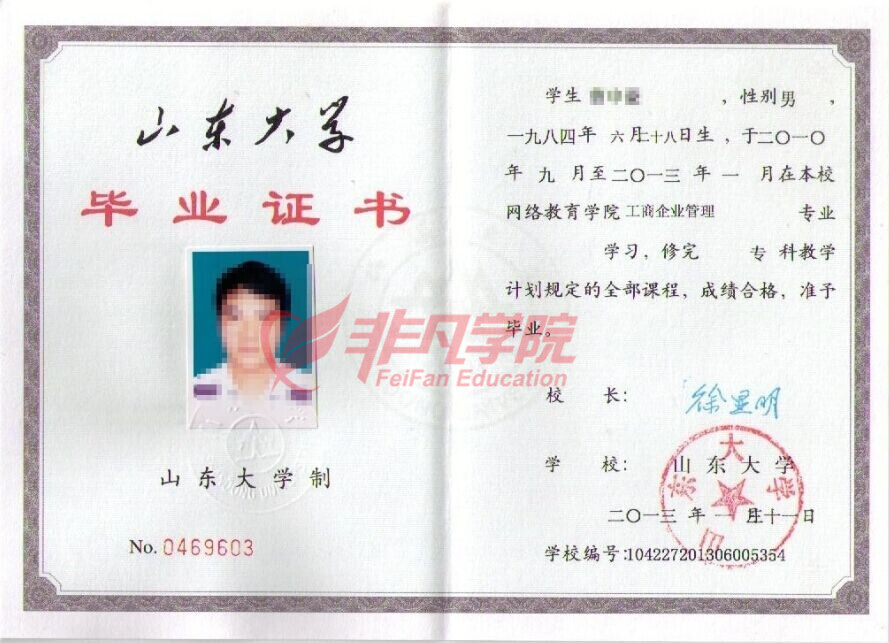 山东大学
毕业证书
山东大学制
No. 0469603
学生 ，性别男，
一九八四年 六月二十八日生，于二〇一〇
年 九 月至二〇一三 年 一 月在本校
网络教育学院 工商企业管理 专业
学习，修完 专 科教学
计划规定的全部课程，成绩合格，准予
毕业。
校 长： 徐显明
学 校： 山东大学
二〇一三 年 一 月 十一日
学校编号:104227201306005354
山东大学
非凡学院
FeiFan Education